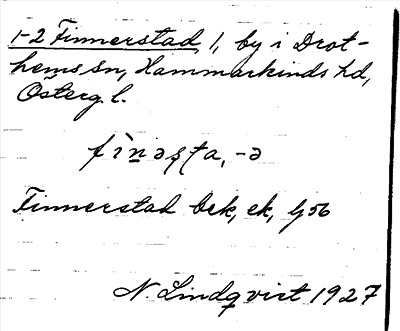 1-2 Finnerstad /, by i Drot-
hems sn, Hammarkinds hd,
Österg. l.
fìnəʂʈa, -ə
Finnerstad bek, ek, Gsb
N. Lindqvist 1927